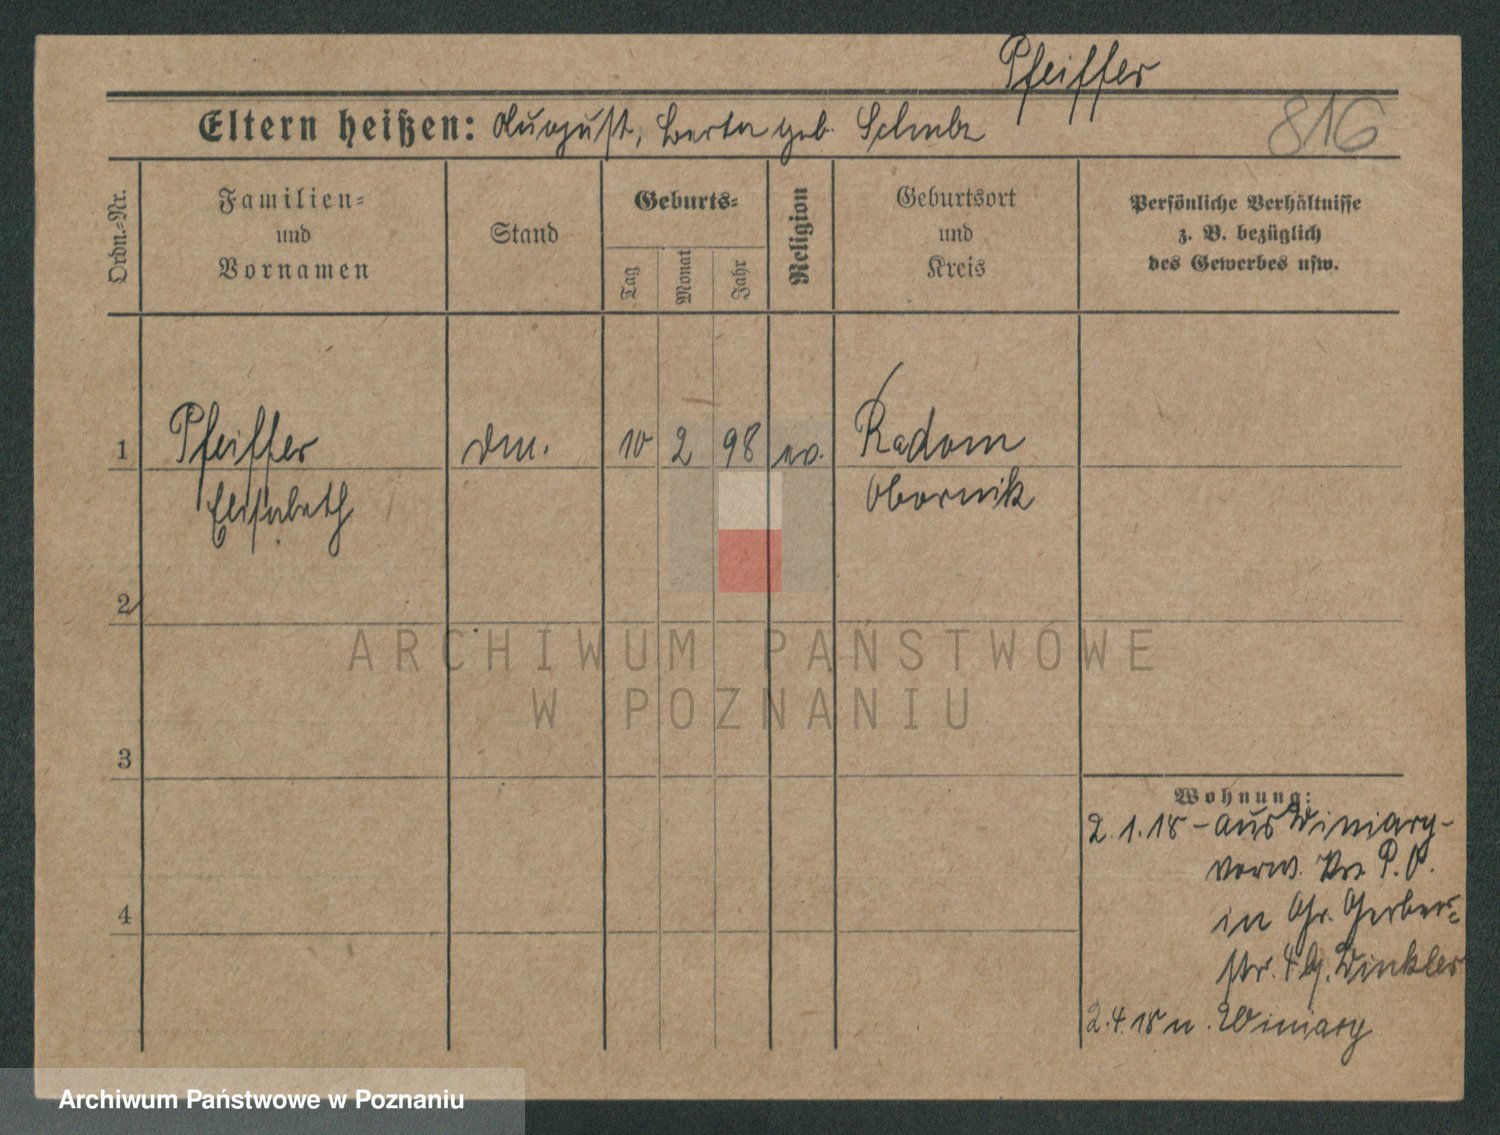 Pfeiffer
Eltern heißen: August, Berta geb. Schulz
816
Ordn.-Nr.
Familien-
und
Vornamen
Stand
Geburts-
Tag
Monat
Jahr
Religion
Geburtsort
und
Kreis
Persönliche Verhältnisse
z. B. bezüglich
des Gewerbes usw.
1 Pfeiffer 10 2 98 ev. Radom
Elisabeth Obornik
2
ARCHIWUM PAŃSTWOWE
W POZNANIU
3
4
Wohnung:
2.1.18 - aus Winiary-
P. O.
in Gr. Gerber-
str. 4 Winkler
2.4.18 n. Winiary
Archiwum Państwowe w Poznaniu